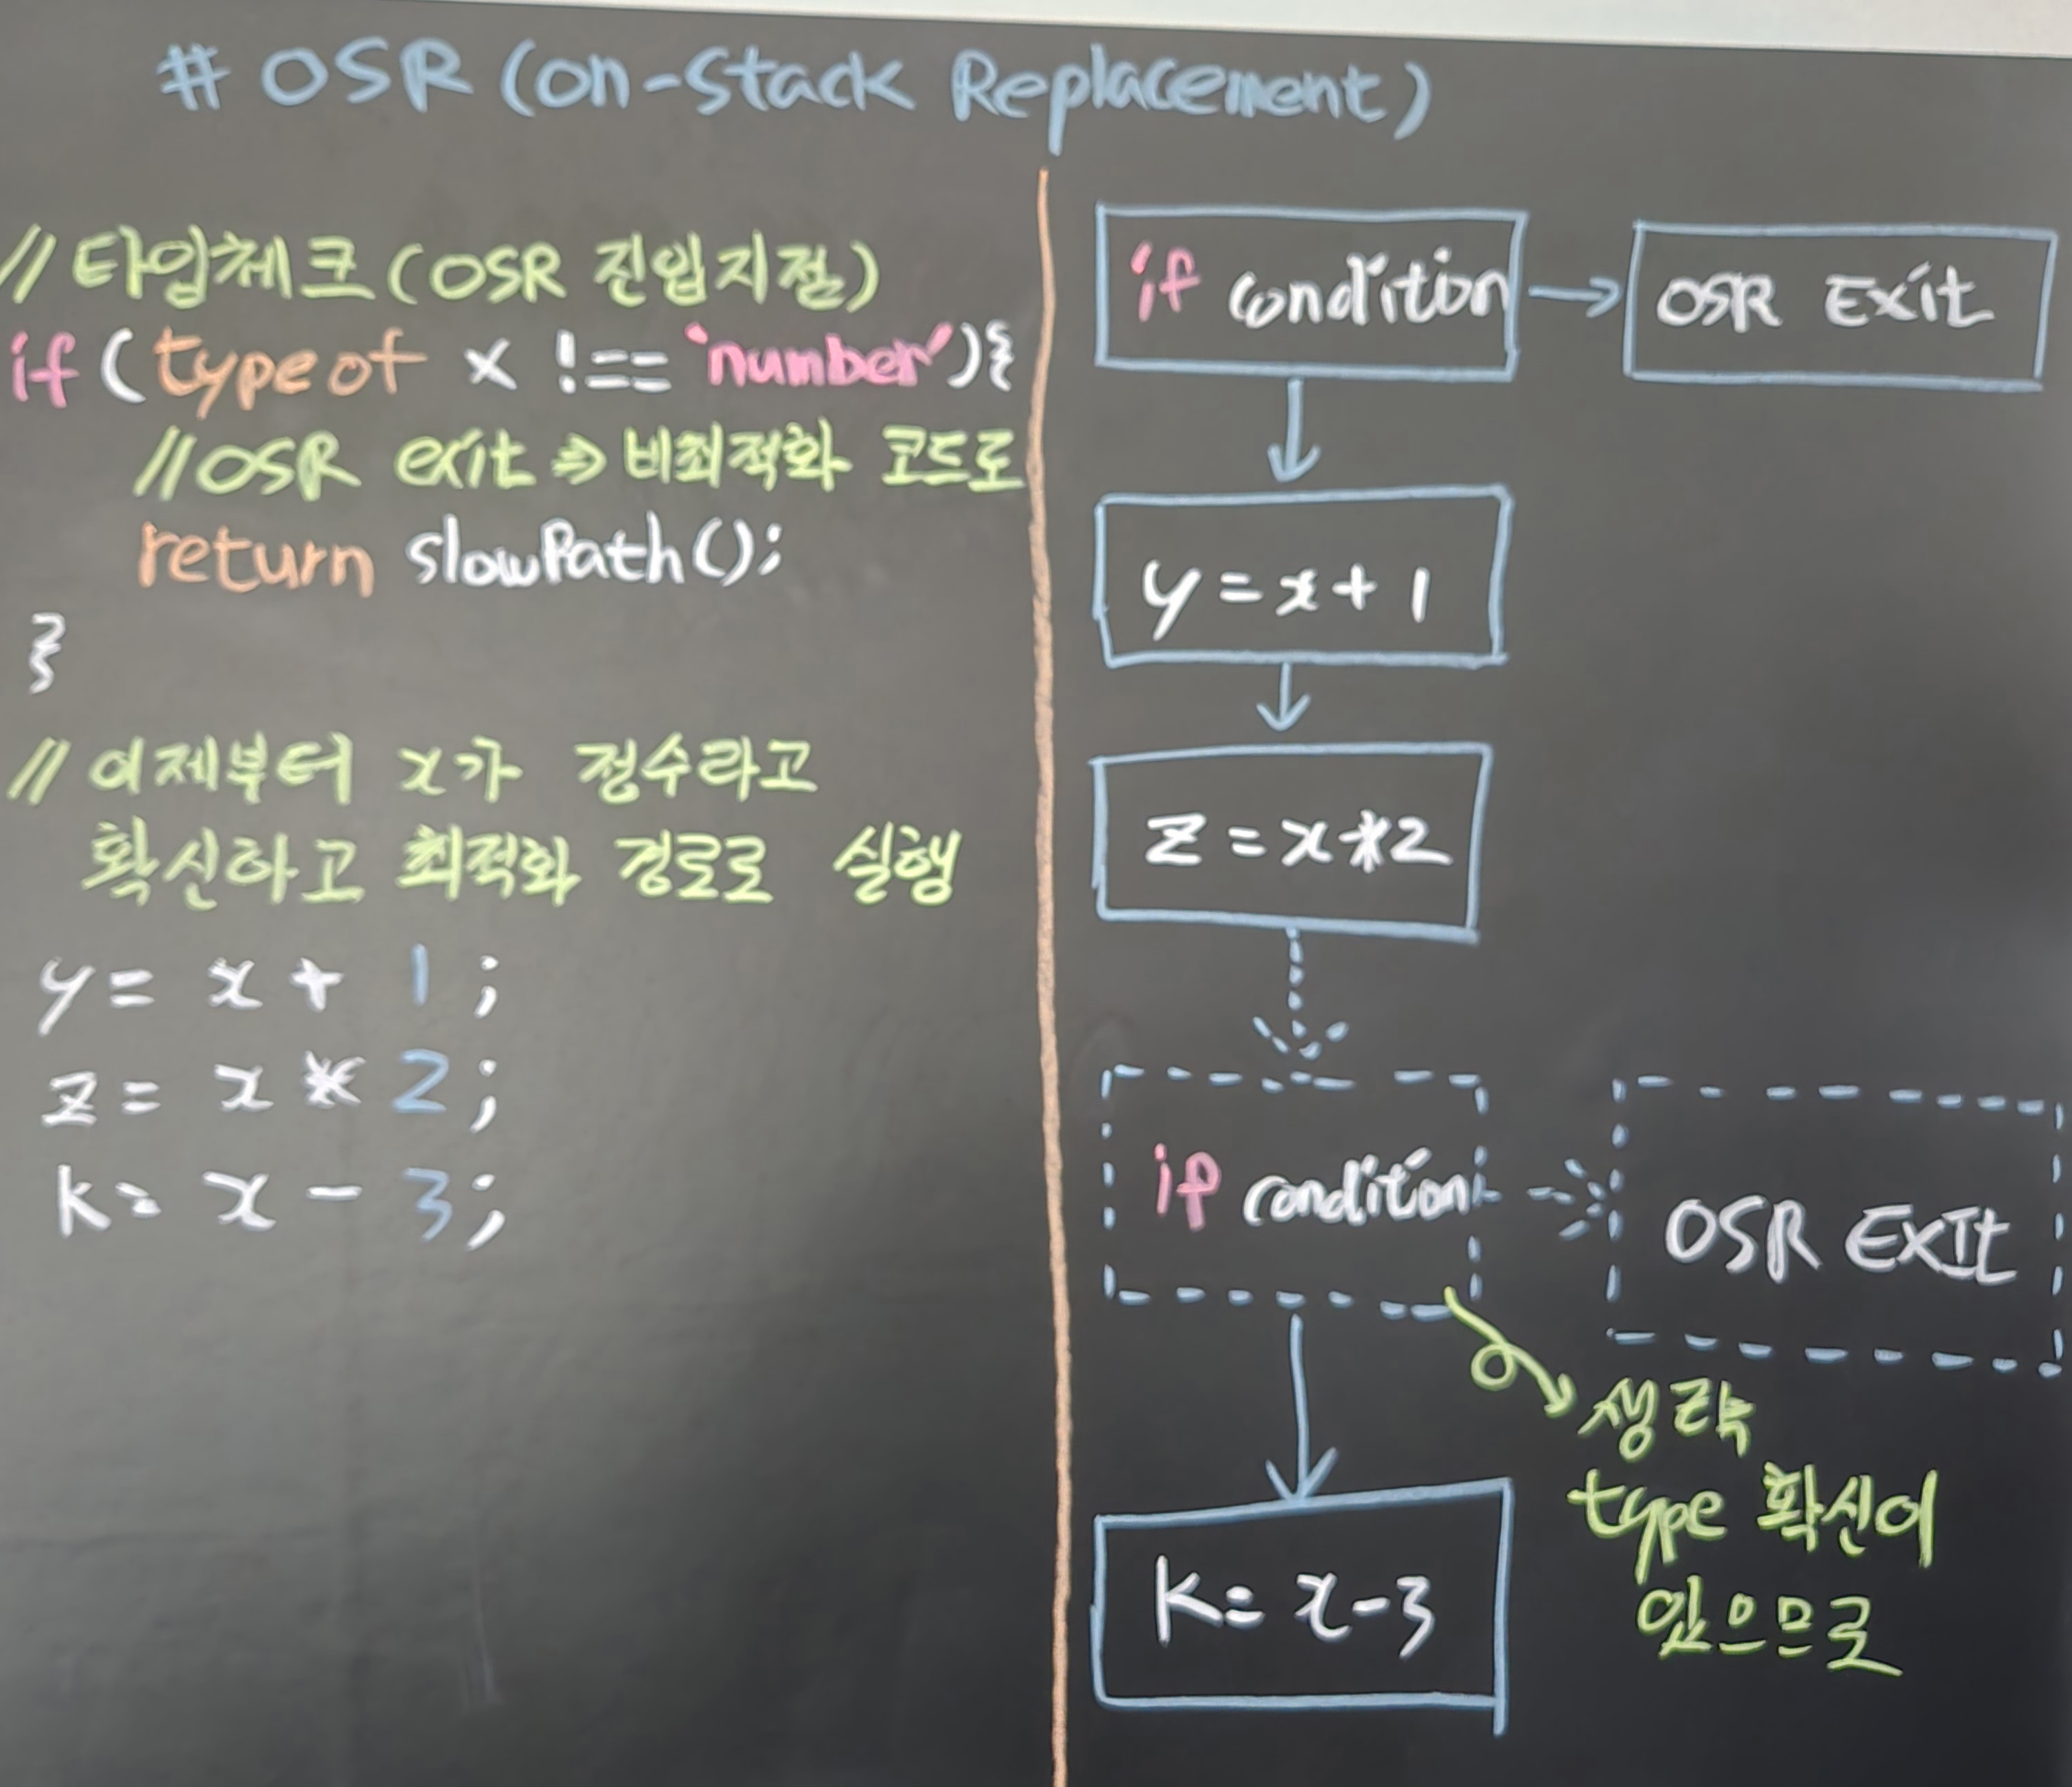 # OSR (on-Stack Replacement)
// 타입체크 (OSR 진입지점)
if (typeof x !== 'number'){
//OSR exit ⇒ 비최적화 코드로
return slowPath();
}
// 이제부터 x가 정수라고
확신하고 최적화 경로로 실행
y = x + 1 ;
z = x * 2 ;
k = x - 3 ;
if condition → OSR Exit
y = x + 1
z = x * 2
if condition → OSR EXIt
생략
type 확신이
있으므로
k = x - 3